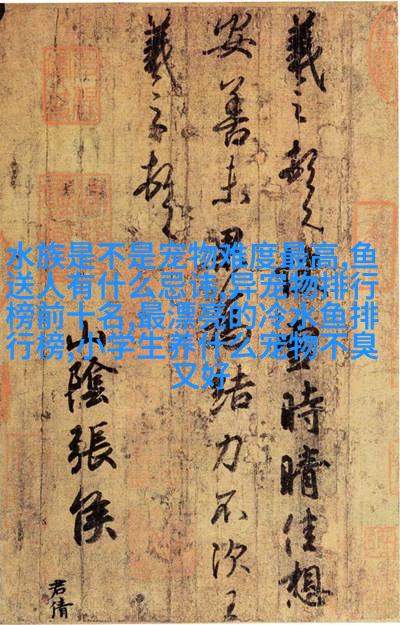 羲之頓首快雪時晴佳想
安善未果為結力不次王
羲之頓首
山陰張侯
君倩
水族是不是宠物难度最高,鱼
送人有什么忌讳,异宠物排行
榜前十名,最漂亮的冷水鱼排
行榜,小学生养什么宠物不臭
又好